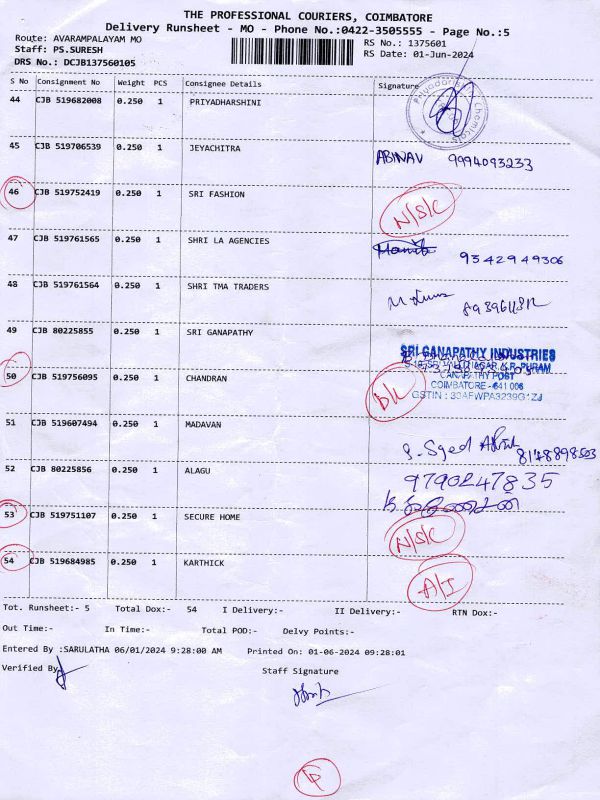 THE PROFESSIONAL COURIERS, COIMBATORE
Delivery Runsheet - MO - Phone No.:0422-3505555 - Page No.:5
Route: AVARAMPALAYAM MO
RS No.: 1375601
Staff: PS.SURESH
RS Date: 01-Jun-2024
DRS No.: DCJB137560105
S No Consignment No Weight PCS Consignee Details Signature
44 CJB 519682008 0.250 1 PRIYADHARSHINI
45 CJB 519706539 0.250 1 JEYACHITRA ABINAV 9994093233
46 CJB 519752419 0.250 1 SRI FASHION N/S/C
47 CJB 519761565 0.250 1 SHRI LA AGENCIES 9342949306
48 CJB 519761564 0.250 1 SHRI TMA TRADERS
49 CJB 80225855 1 SRI GANAPATHY
SRI GANAPATHY INDUSTRIES
GANAPATHY POST
COIMBATORE - 641 006
50 CJB 519756095 0.250 1 CHANDRAN D/L
GSTIN :
51 CJB 519607494 0.250 1 MADAVAN 8148898503
52 CJB 80225856 1 ALAGU 9790247835
53 CJB 519751107 0.250 1 SECURE HOME N/S/C
54 CJB 519684985 0.250 1 KARTHICK A/I
Tot. Runsheet:- 5 Total Dox:- 54 I Delivery:- II Delivery:- RTN Dox:-
Out Time:- In Time:- Total POD:- Delvy Points:-
Entered By :SARULATHA 06/01/2024 9:28:00 AM Printed On: 01-06-2024 09:28:01
Verified By
Staff Signature